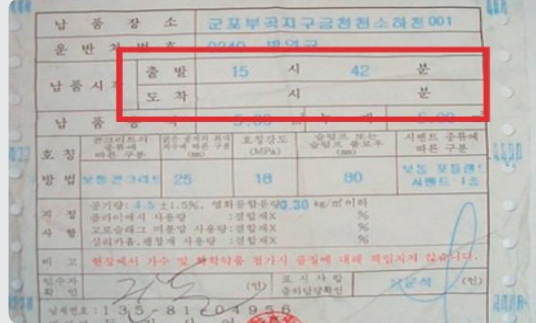 납 품 장 소 군포부곡지구금천천소하천001
운 반 차 번 호 0240
납품시각 출 발 15 시 42 분
도 착 시 분
납 품 용 적 5.00
호 칭 방 법 콘크리트의 종류에 따른 구분 굵은 골재의 최대 치수에 따른 구분 (mm) 호칭강도 (MPa) 슬럼프 또는 슬럼프 플로우 (mm) 시멘트 종류에 따른 구분
보통콘크리트 25 18 80 보통 포틀랜드 시멘트 1종
지 정 사 항 공기량: 4.5 ±1.5%, 염화물함유량0.30 kg/㎥이하
플라이애시 사용량 :결합재X %
고로슬래그 미분말 사용량:결합재X %
실리카흄,팽창재 사용량 :결합재X %
비 고 현장에서 가수 및 화학약품 첨가시 품질에 대해 책임지지 않습니다.
인수자 확 인 (인) 표 시 사 항 출하담당확인 (인)
135-81-04956